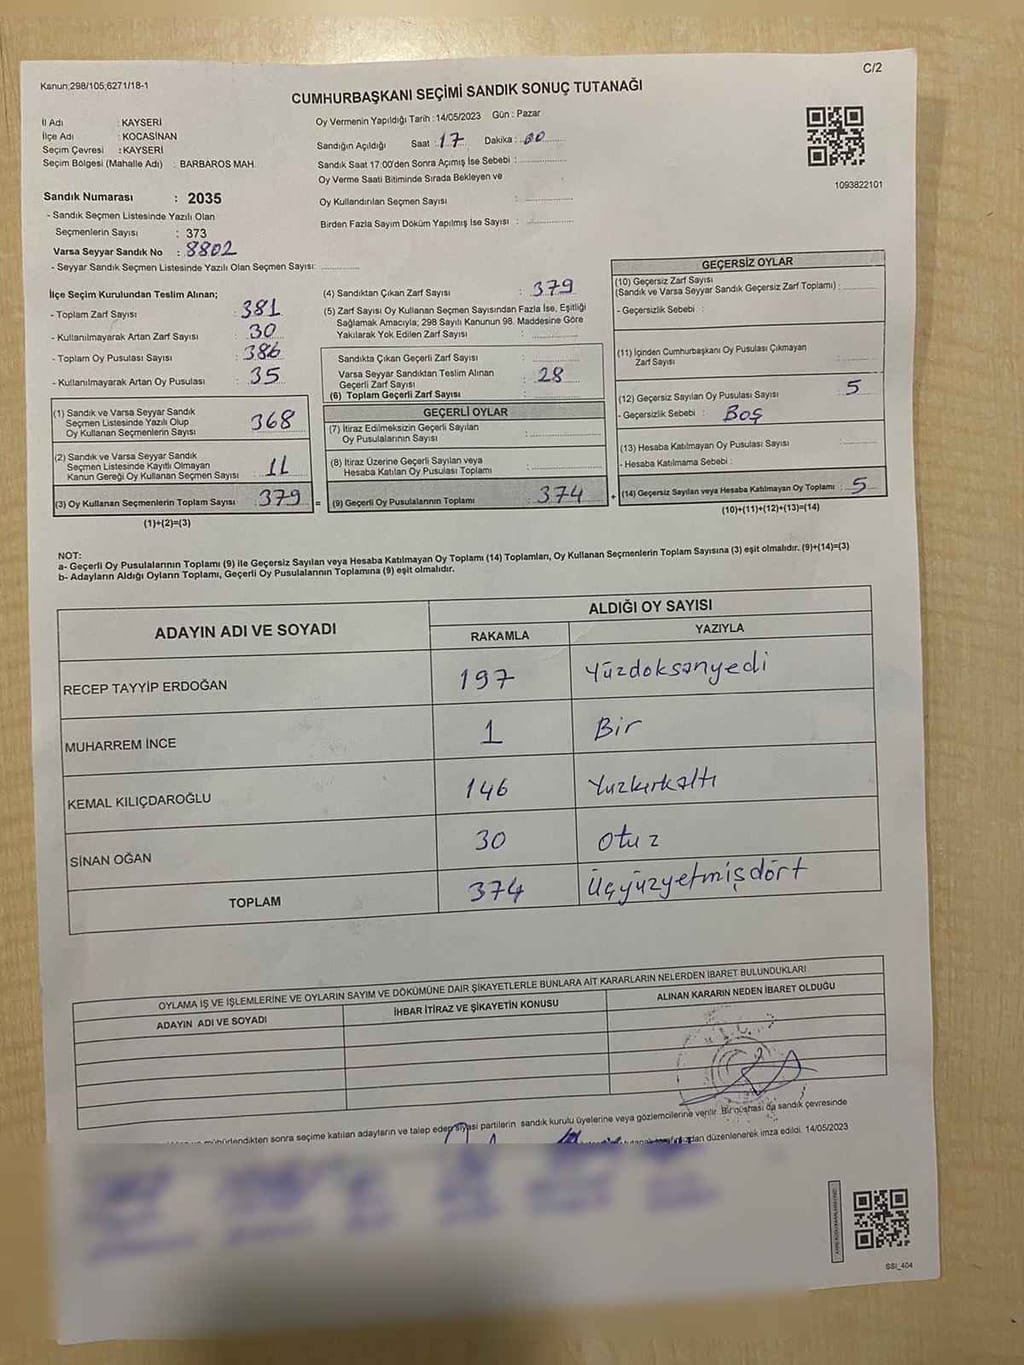 C/2
Kanun;298/105;6271/18-1
CUMHURBAŞKANI SEÇİMİ SANDIK SONUÇ TUTANAĞI
İl Adı : KAYSERİ
İlçe Adı : KOCASİNAN
Seçim Çevresi : KAYSERİ
Seçim Bölgesi (Mahalle Adı) : BARBAROS MAH.
Oy Vermenin Yapıldığı Tarih : 14/05/2023 Gün : Pazar
Sandığın Açıldığı Saat : 17 Dakika : 00
Sandık Saat 17:00'den Sonra Açımış İse Sebebi :
Oy Verme Saati Bitiminde Sırada Bekleyen ve
Oy Kullandırılan Seçmen Sayısı :
Birden Fazla Sayım Döküm Yapılmış İse Sayısı :
1093822101
Sandık Numarası : 2035
- Sandık Seçmen Listesinde Yazılı Olan
Seçmenlerin Sayısı : 373
Varsa Seyyar Sandık No : 8802
- Seyyar Sandık Seçmen Listesinde Yazılı Olan Seçmen Sayısı:
İlçe Seçim Kurulundan Teslim Alınan;
- Toplam Zarf Sayısı : 381
- Kullanılmayarak Artan Zarf Sayısı : 30
- Toplam Oy Pusulası Sayısı : 386
- Kullanılmayarak Artan Oy Pusulası : 35
(1) Sandık ve Varsa Seyyar Sandık
Seçmen Listesinde Yazılı Olup
Oy Kullanan Seçmenlerin Sayısı : 368
(2) Sandık ve Varsa Seyyar Sandık
Seçmen Listesinde Kayıtlı Olmayan
Kanun Gereği Oy Kullanan Seçmen Sayısı : 11
(3) Oy Kullanan Seçmenlerin Toplam Sayısı : 379 =
(1)+(2)=(3)
(4) Sandıktan Çıkan Zarf Sayısı : 379
(5) Zarf Sayısı Oy Kullanan Seçmen Sayısından Fazla İse, Eşitliği
Sağlamak Amacıyla; 298 Sayılı Kanunun 98. Maddesine Göre
Yakılarak Yok Edilen Zarf Sayısı :
Sandıkta Çıkan Geçerli Zarf Sayısı :
Varsa Seyyar Sandıktan Teslim Alınan
Geçerli Zarf Sayısı : 28
(6) Toplam Geçerli Zarf Sayısı :
GEÇERLİ OYLAR
(7) İtiraz Edilmeksizin Geçerli Sayılan
Oy Pusulalarının Sayısı :
(8) İtiraz Üzerine Geçerli Sayılan veya
Hesaba Katılan Oy Pusulası Toplamı :
(9) Geçerli Oy Pusulalarının Toplamı : 374 +
GEÇERSİZ OYLAR
(10) Geçersiz Zarf Sayısı
(Sandık ve Varsa Seyyar Sandık Geçersiz Zarf Toplamı) :
- Geçersizlik Sebebi :
(11) İçinden Cumhurbaşkanı Oy Pusulası Çıkmayan
Zarf Sayısı :
(12) Geçersiz Sayılan Oy Pusulası Sayısı : 5
- Geçersizlik Sebebi : Boş
(13) Hesaba Katılmayan Oy Pusulası Sayısı :
- Hesaba Katılmama Sebebi :
(14) Geçersiz Sayılan veya Hesaba Katılmayan Oy Toplamı : 5
(10)+(11)+(12)+(13)=(14)
NOT:
a- Geçerli Oy Pusulalarının Toplamı (9) ile Geçersiz Sayılan veya Hesaba Katılmayan Oy Toplamı (14) Toplamları, Oy Kullanan Seçmenlerin Toplam Sayısına (3) eşit olmalıdır. (9)+(14)=(3)
b- Adayların Aldığı Oyların Toplamı, Geçerli Oy Pusulalarının Toplamına (9) eşit olmalıdır.
ADAYIN ADI VE SOYADI
ALDIĞI OY SAYISI
RAKAMLA YAZIYLA
RECEP TAYYİP ERDOĞAN 197 Yüzdoksanyedi
MUHARREM İNCE 1 Bir
KEMAL KILIÇDAROĞLU 146 Yuzkırkaltı
SİNAN OĞAN 30 Otuz
TOPLAM 374 Üçyüzyetmişdört
OYLAMA İŞ VE İŞLEMLERİNE VE OYLARIN SAYIM VE DÖKÜMÜNE DAİR ŞİKAYETLERLE BUNLARA AİT KARARLARIN NELERDEN İBARET BULUNDUKLARI
ADAYIN ADI VE SOYADI İHBAR İTİRAZ VE ŞİKAYETİN KONUSU ALINAN KARARIN NEDEN İBARET OLDUĞU
mühürlendikten sonra seçime katılan adayların ve talep eden siyasi partilerin sandık kurulu üyelerine veya gözlemcilerine verilir. Bir nüshası da sandık çevresinde
düzenlenerek imza edildi. 14/05/2023
SSI_404